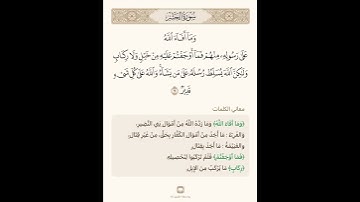 سورة الحشر
وَمَا أَفَاءَ اللَّهُ
عَلَىٰ رَسُولِهِ مِنْهُمْ فَمَا أَوْجَفْتُمْ عَلَيْهِ مِنْ خَيْلٍ وَلَا رِكَابٍ
وَلَٰكِنَّ اللَّهَ يُسَلِّطُ رُسُلَهُ عَلَىٰ مَن يَشَاءُ وَاللَّهُ عَلَىٰ كُلِّ شَيْءٍ
قَدِيرٌ ٦
معاني الكلمات
﴿وَمَا أَفَاءَ اللَّهُ﴾ وَمَا رَدَّهُ اللَّهُ مِنْ أَمْوَالِ بَنِي النَّضِيرِ،
وَالفَيْءُ: مَا أُخِذَ مِنْ أَمْوَالِ الكُفَّارِ بِحَقٍّ، مِنْ غَيْرِ قِتَالٍ،
وَالغَنِيمَةُ: مَا أُخِذَ بِقِتَالٍ.
﴿فَمَا أَوْجَفْتُمْ﴾ فَلَمْ تَرْكَبُوا لِتَحْصِيلِهِ.
﴿رِكَابٍ﴾ مَا يُرْكَبُ مِنَ الإِبِلِ.